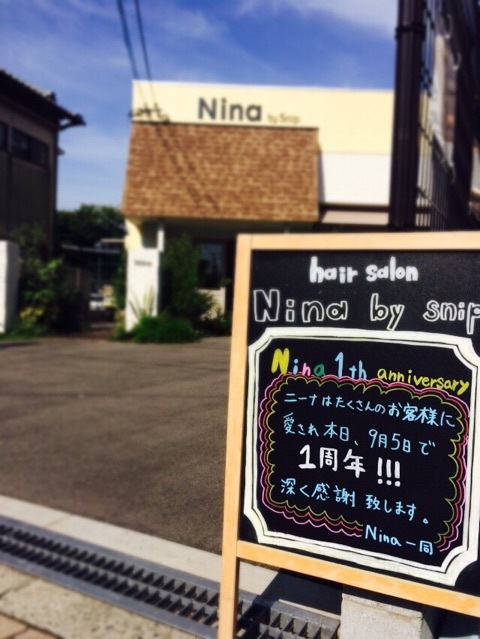 Nina by Snip
hair salon
Nina by snip
Nina 1th anniversary
ニーナはたくさんのお客様に
愛され本日、9月5日で
1周年!!!
深く感謝致します。
Nina一同